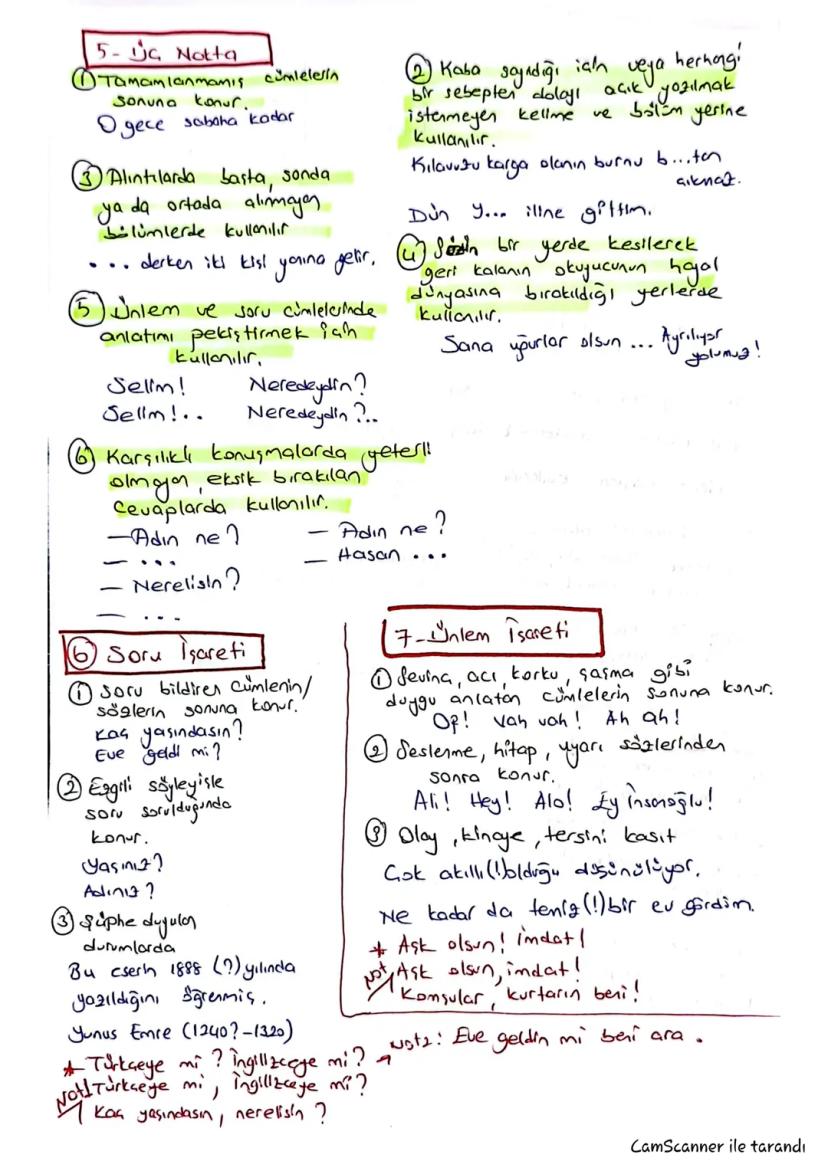 5- Üç Nokta
① Tamamlanmamış cümlelerin
sonuna konur.
O gece sabaha kadar
② Kaba sayıldığı için veya herhangi
bir sebepten dolayı açık yazılmak
istenmeyen kelime ve bölüm yerine
kullanılır.
Kılavuzu karga olanın burnu b...tan
çıkmaz.
Dün Y... iline gittim.
③ Alıntılarda başta, sonda
ya da ortada alınmayan
bölümlerde kullanılır
... derken iki kişi yanına gelir.
④ Sözün bir yerde kesilerek
geri kalanın okuyucunun hayal
dünyasına bırakıldığı yerlerde
kullanılır.
Sana uğurlar olsun ... Ayrılıyor
yolumuz!
⑤ Ünlem ve soru cümlelerinde
anlatımı pekiştirmek için
kullanılır.
Selim! Neredeydin?
Selim!.. Neredeydin?..
⑥ Karşılıklı konuşmalarda yeterli
olmayan, eksik bırakılan
cevaplarda kullanılır.
— Adın ne? — Adın ne?
— ... — Hasan ...
— Nerelisin?
— ...
⑥ Soru İşareti
① Soru bildiren cümlenin/
sözlerin sonuna konur.
Kaç yaşındasın?
Eve geldi mi?
② Ezgili söyleyişle
soru sorulduğunda
konur.
Yaşınız?
Adınız?
③ Şüphe duyulan
durumlarda
Bu eserin 1888 (?) yılında
yazıldığını öğrenmiş.
Yunus Emre (1240?-1320)
* Türkçeye mi? İngilizceye mi?
Not1 Türkçeye mi, İngilizceye mi?
Kaç yaşındasın, nerelisin?
7- Ünlem İşareti
① Sevinç, acı, korku, şaşma gibi
duygu anlatan cümlelerin sonuna konur.
Of! Vah vah! Ah ah!
② Seslenme, hitap, uyarı sözlerinden
sonra konur.
Ali! Hey! Alo! Ey İnsanoğlu!
③ Olay, kinaye, tersini kasıt
Çok akıllı(!) olduğu düşünülüyor.
Ne kadar da temiz(!) bir ev gördüm.
* Aşk olsun! İmdat!
Not Aşk olsun, imdat!
Komşular, kurtarın beni!
Not2: Eve geldin mi beni ara.
CamScanner ile tarandı